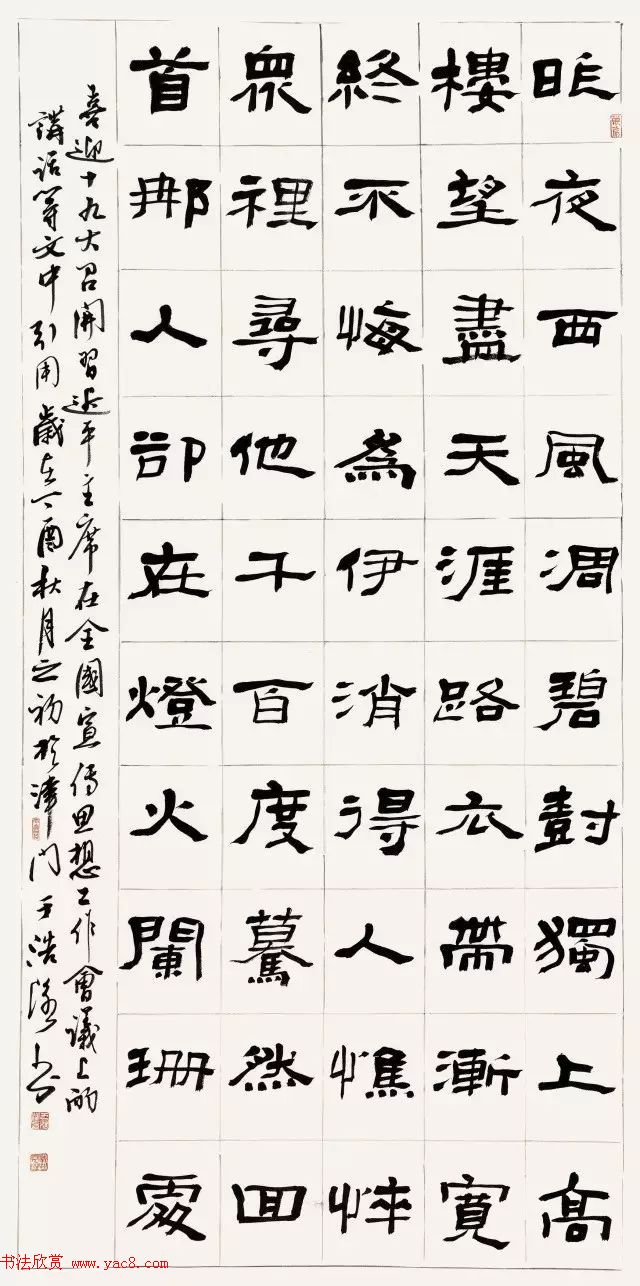 昨夜西風凋碧樹獨上高
樓望盡天涯路衣帶漸寬
終不悔爲伊消得人憔悴
眾裡尋他千百度驀然回
首那人卻在燈火闌珊處
喜迎十九大召開習近平主席在全國宣傳思想工作會議上的
講話等文中引用歲在丁酉秋月之初於津門王浩
书法欣赏 www.yac8.com